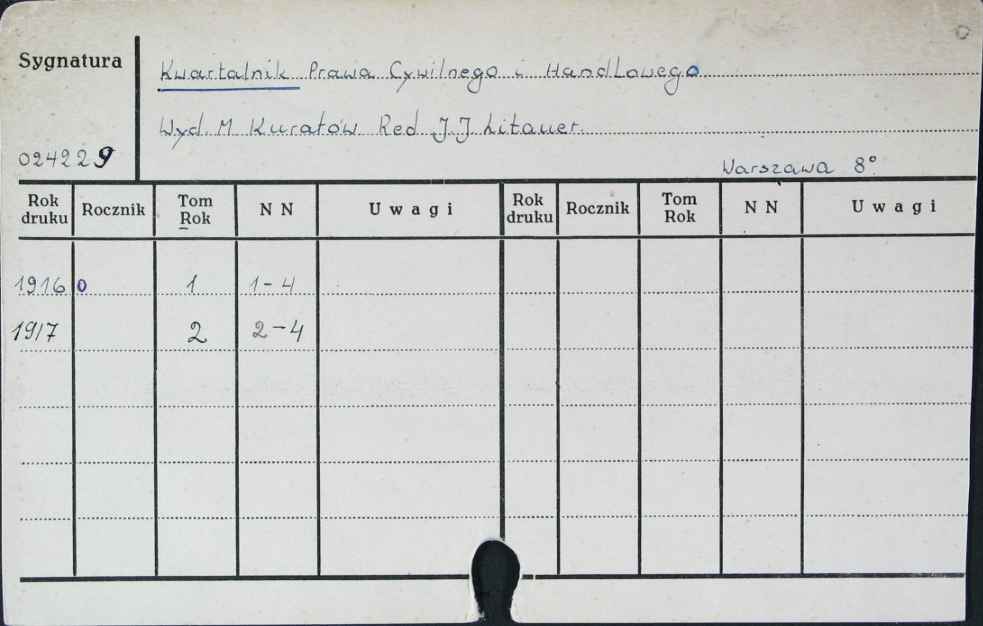 Sygnatura
Kwartalnik Prawa Cywilnego i Handlowego
Wyd. M Kuratów Red J.J. Litauer.
024229
Warszawa 8°
Rok druku Rocznik Tom Rok N N Uwagi Rok druku Rocznik Tom Rok N N Uwagi
1916 0 1 1-4
1917 2 2-4